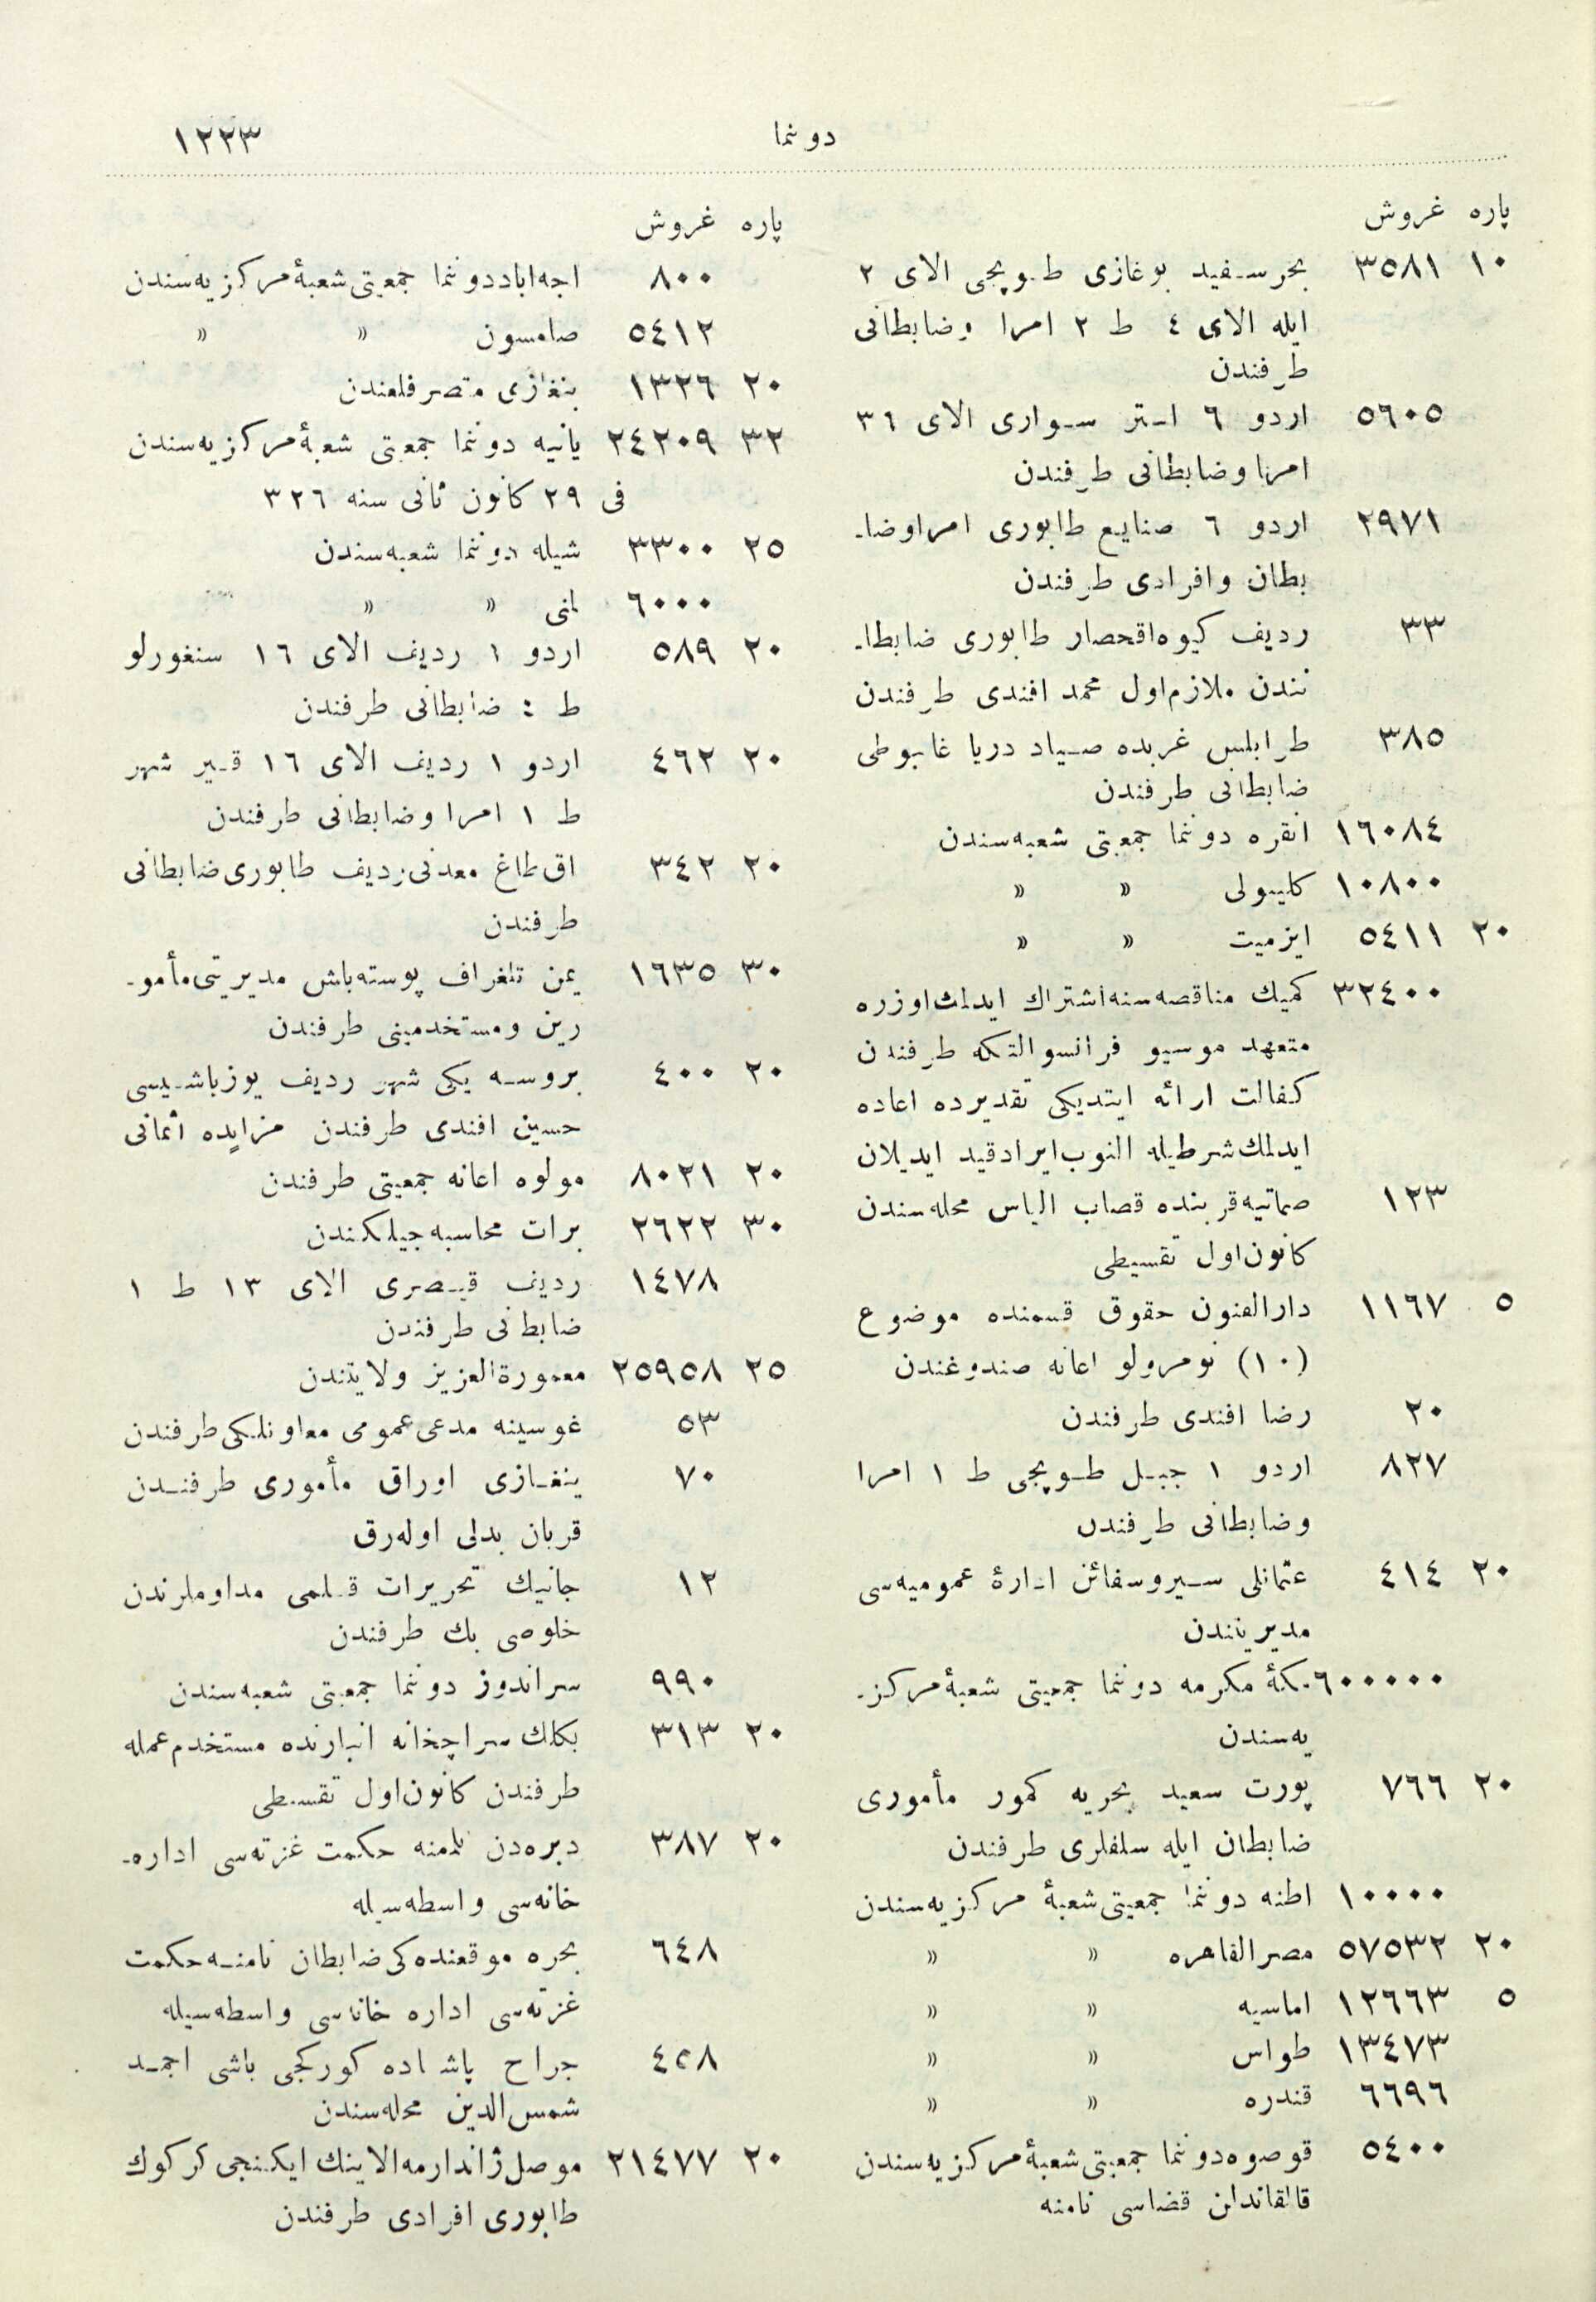 دونما
١٢٢٣
پاره غروش
١٠ ٣٥٨١ بحر سفید بوغازی طوپجی الای ٢
ایله الای ٤ ط ٢ امرا وضابطانی
طرفندن
٥٦٠٥ اردو ٦ استر سواری الای ٣٦
امرا وضابطانی طرفندن
٢٩٧١ اردو ٦ صنایع طابوری امراوضا-
بطان وافرادی طرفندن
٣٣ ردیف کیوه اقحصار طابوری ضابطا-
نندن ملازم اول محمد افندی طرفندن
٣٨٥ طرابلس غربده صیاد دریا غانبوطی
ضابطانی طرفندن
١٦٠٨٤ انقره دونما جمعیتی شعبه سندن
١٠٨٠٠ کلیبولی » »
٢٠ ٥٤١١ ایزمیت » »
٣٢٤٠٠ کمیك مناقصه سنه اشتراك ایدلمك اوزره
متعهد موسیو فرانسوالتکه طرفندن
کفالت ارائه ایتدیکی تقدیرده اعاده
ایدلمك شرطیله النوب ایراد قید ایدیلان
١٢٣ صماتیه قربنده قصاب الیاس محله سندن
کانون اول تقسیطی
٥ ١١٦٧ دارالفنون حقوق قسمنده موضوع
(١٠) نومرولو اعانه صندوغندن
٢٠ رضا افندی طرفندن
٨٢٧ اردو ١ جبل طوپجی ط ١ امرا
وضابطانی طرفندن
٢٠ ٤١٤ عثمانلی سیروسفائن ادارهٔ عمومیه سی
مدیریتندن
٦٠٠٠٠٠ مکهٔ مکرمه دونما جمعیتی شعبهٔ مرکز-
یه سندن
٢٠ ٧٦٦ پورت سعید بحریه کمور مأموری
ضابطان ایله سلفلری طرفندن
١٠٠٠٠ اطنه دونما جمعیتی شعبهٔ مرکزیه سندن
٢٠ ٥٧٥٣٢ مصرالقاهره » »
٥ ١٢٦٦٣ اماسیه » »
١٣٤٧٣ طواس » »
٦٦٩٦ قندره » »
٥٤٠٠ قوصوه دونما جمعیتی شعبهٔ مرکزیه سندن
قالقاندلن قضاسی نامنه
پاره غروش
٨٠٠ اجه اباد دونما جمعیتی شعبهٔ مرکزیه سندن
٥٤١٢ صامسون » »
٢٠ ١٣٢٦ بنغازی متصرفلغندن
٣٢ ٢٤٢٠٩ یانیه دونما جمعیتی شعبهٔ مرکزیه سندن
فی ٢٩ کانون ثانی سنه ٣٢٦
٢٥ ٣٣٠٠ شیله دونما شعبه سندن
٦٠٠٠ » »
٢٠ ٥٨٩ اردو ١ ردیف الای ١٦ سنغورلو
ط : ضابطانی طرفندن
٢٠ ٤٦٢ اردو ١ ردیف الای ١٦ قیر شهر
ط ١ امرا وضابطانی طرفندن
٢٠ ٣٤٢ اق طاغ معدنی ردیف طابوری ضابطانی
طرفندن
٣٠ ١٦٣٥ یمن تلغراف پوسته باش مدیریتی مأمو-
رین ومستخدمینی طرفندن
٢٠ ٤٠٠ بروسه یکی شهر ردیف یوزباشیسی
حسین افندی طرفندن مزایده اثمانی
٢٠ ٨٠٢١ مولوه اعانه جمعیتی طرفندن
٣٠ ٢٦٢٢ برات محاسبه جیلکندن
١٤٧٨ ردیف قیصری الای ١٣ ط ١
ضابطانی طرفندن
٢٥ ٢٥٩٥٨ معمورةالعزیز ولایتندن
٥٣ غوسینه مدعی عمومی معاونلکی طرفندن
٧٠ بنغازی اوراق مأموری طرفندن
قربان بدلی اوله رق
١٢ جانیك تحریرات قلمی مداوملرندن
خلوصی بك طرفندن
٩٩٠ سراندوز دونما جمعیتی شعبه سندن
٢٠ ٣١٣ بکلك سراچخانه انبارنده مستخدم عمله
طرفندن کانون اول تقسیطی
٢٠ ٣٨٧ دبره دن نامنه حکمت غزته سی اداره-
خانه سی واسطه سیله
٦٤٨ بحره موقعنده کی ضابطان نامنه حکمت
غزته سی اداره خانه سی واسطه سیله
٤٥٨ جراح پاشاده کورکجی باشی احمد
شمس الدین محله سندن
٢٠ ٢١٤٧٧ موصل ژاندارمه الاینك ایکنجی کرکوك
طابوری افرادی طرفندن